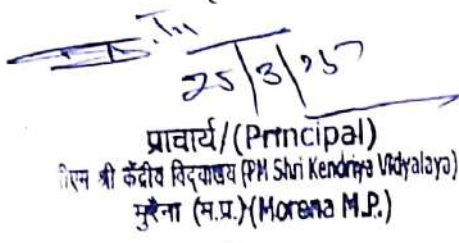 25/3/25
प्राचार्य/(Principal)
पीएम श्री केंद्रीय विद्यालय (PM Shri Kendriya Vidyalaya)
मुरैना (म.प्र.)(Morena M.P.)